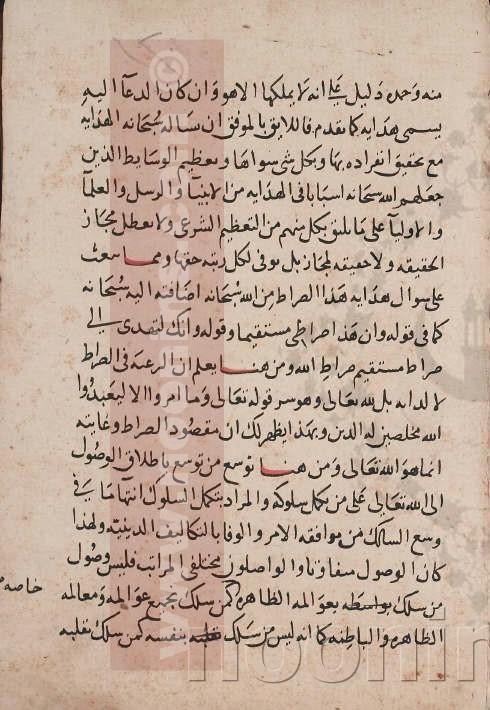 منه وحده دليل على انه لا يملكها الا هو وان كان الدعآ اليه
يسمى هدايه كما تقدم فاللايق بالموفق ان يساله سبحانه الهدايه
مع تحقيق انفراده بها وبكل شى سواها وتعظيم الوسايط الذين
جعلهم الله سبحانه اسبابا فى الهدايه من الانبيآ والرسل والعلمآ
والاوليآ على ما يليق بكل منهم من التعظيم الشرعى ولا يعطل مجاز
الحقيقه ولا حقيقه المجاز بل يوفى لكل رتبه حقها ومما يبعث
على سوال هدايه هذا الصراط من الله سبحانه اضافته اليه سبحانه
كما فى قوله وان هذا صراطى مستقيما وقوله وانك لتهدى الى
صراط مستقيم صراط الله ومن هنا يعلم ان الرغبه فى الصراط
لا لذاته بل لله تعالى وهو سر قوله تعالى وما امروا الا ليعبدوا
الله مخلصين له الدين وبهذا يظهر لك ان مقصود الصراط وغايته
انما هو الله تعالى ومن هنا توسع من توسع باطلاق الوصول
الى الله تعالى على من يكمل سلوكه والمراد بتكمل السلوك انتهآ ما فى
وسع السالك من موافقه الامر والوفا بالتكاليف الدينيه ولهذا
كان الوصول متفاوتا والواصلون مختلفى المراتب فليس وصول
من سلك بواسطه بعوالمه الظاهره كمن سلك بجميع عوالمه ومعالمه
خاصه
الظاهره والباطنه كما انه ليس من سلك بنفسه كمن سلك بقلبه
noormags